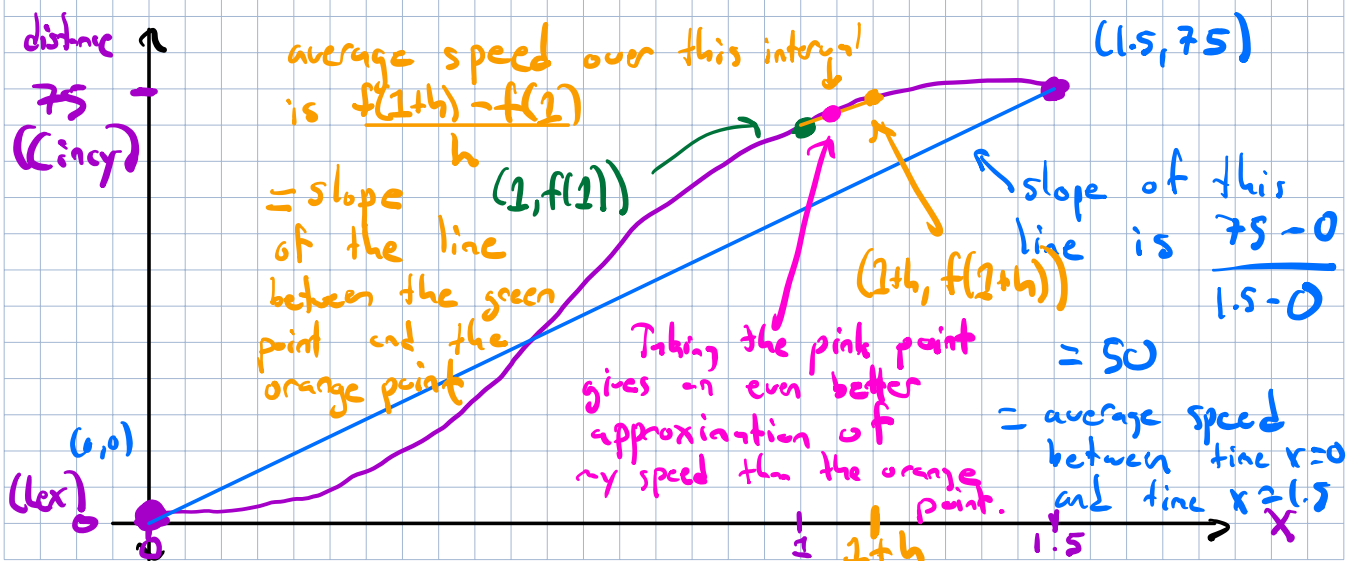 distance
75
(Cincy)
average speed over this interval
is f(1+h) - f(1)
h
= slope
of the line
between the green
point and the
orange point
(1, f(1))
(1.5, 75)
slope of this
line is 75 - 0
1.5 - 0
= 50
= average speed
between time x=0
and time x=1.5
(1+h, f(1+h))
Taking the pink point
gives an even better
approximation of
my speed than the orange
point.
(0,0)
(Lex)
0
0
1
1+h
1.5
X